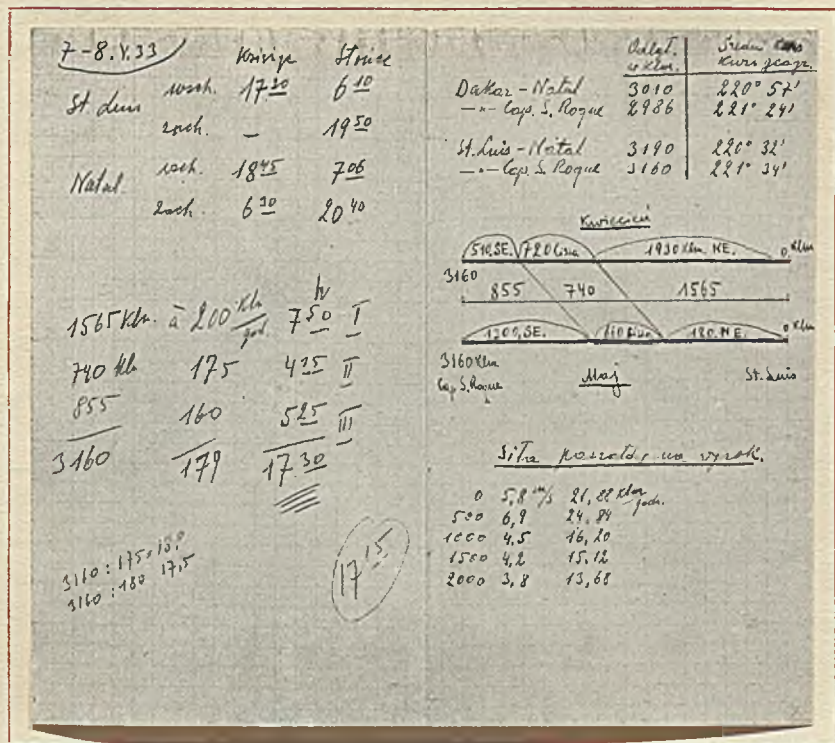 7-8.V.33
Księżyc Słońce
St. Luis wsch. 17 30 6 10
zach. — 19 50
Natal wsch. 18 45 7 06
zach. 6 30 20 40
1565 Klm. à 200 Klm/god. 7 50 h I
740 Klm 175 4 15 II
855 160 5 25 III
3160 179 17.30
3160 : 175 = 18,0
3160 : 180 17,5
17 15
Odległ. w klm. Średni kurs geogr.
Dakar - Natal 3010 220° 57'
—„— Cap. S. Roque 2986 221° 24'
St. Luis - Natal 3190 220° 32'
—„— Cap. S. Roque 3160 221° 34'
Kwiecień
510. SE. 720 Cisza 1930 Klm. NE. 0 Klm
3160
855 740 1565
1200, SE. 180. NE. 0 Klm
3160 Klm
Cap S. Roque Maj St. Luis
Siła na wysok.
0 5,8 m/s 21,22 Klm/godz.
500 6,9 24,84
1000 4,5 16,20
1500 4,2 15,12
2000 3,8 13,68